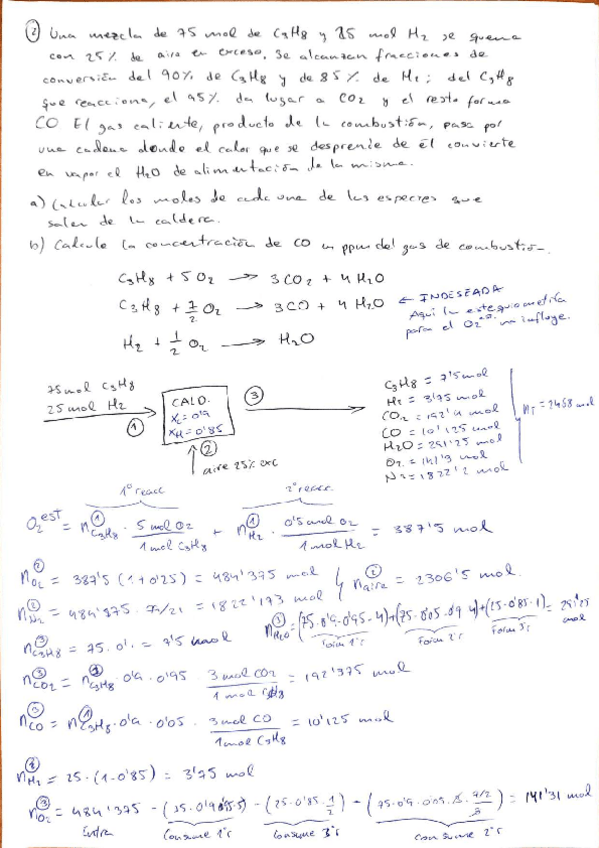 ② Una mezcla de 75 mol de C3H8 y 25 mol H2 se quema
con 25% de aire en exceso. Se alcanzan fracciones de
conversión del 90% de C3H8 y de 85% de H2; del C3H8
que reacciona, el 95% da lugar a CO2 y el resto forma
CO El gas caliente, producto de la combustión, pasa por
una cadena donde el calor que se desprende de él convierte
en vapor el H2O de alimentación de la misma.
a) Calcular los moles de cada una de las especies que
salen de la caldera.
b) Calcule la concentración de CO en ppm del gas de combustión.
C3H8 + 5O2 → 3CO2 + 4H2O
C3H8 + 7/2 O2 → 3CO + 4H2O ← INDESEADA
Aquí la estequiometría
para el O2 est no influye.
H2 + 1/2 O2 → H2O
75mol C3H8
25mol H2
①
CALD.
XC=0'9
XH=0'85
②
aire 25% exc
③
C3H8 = 7'5 mol
H2 = 3'75 mol
CO2 = 192'4 mol
CO = 10'125 mol
H2O = 291'25 mol
O2 = 141'3 mol
N2 = 1822'2 mol
nT = 2468 mol
1º reacc 2º reacc.
O2 est = n① C3H8 · 5 mol O2 / 1 mol C3H8 + n① H2 · 0'5 mol O2 / 1 mol H2 = 387'5 mol
n② O2 = 387'5 (1+0'25) = 484'375 mol n② aire = 2306'5 mol.
n② N2 = 484'375 · 79/21 = 1822'173 mol
n③ H2O = (75·0'9·0'95·4)+(75·0'05·0'9·4)+(25·0'85·1) = 291'25 mol
Forma 1ºr Forma 2ºr Forma 3ºr
n③ C3H8 = 75·0'1 = 7'5 mol
n③ CO2 = n① C3H8 · 0'9 · 0'95 · 3 mol CO2 / 1 mol C3H8 = 192'375 mol
n③ CO = n① C3H8 · 0'9 · 0'05 · 3 mol CO / 1 mol C3H8 = 10'125 mol
n③ H2 = 25·(1-0'85) = 3'75 mol
n③ O2 = 484'375 - (75·0'9·0'95·5) - (25·0'85·1/2) - (75·0'9·0'05·3· 7/2 / 3) = 141'31 mol
Entra Consume 1ºr Consume 3ºr Consume 2ºr